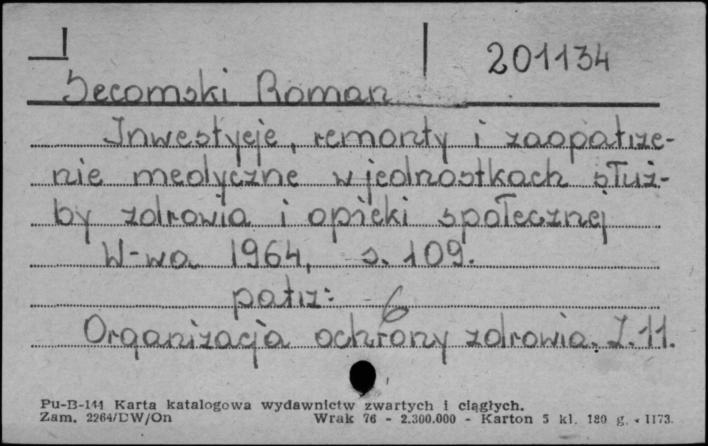 201134
Secomski Roman
Inwestycje, remonty i zaopatrze-
nie medyczne w jednostkach służ-
by zdrowia i opieki społecznej
W-wa 1964, s. 109.
patrz: 6
Organizacja ochrony zdrowia. Z. 11.
Pu-B-144 Karta katalogowa wydawnictw zwartych i ciągłych.
Zam. 2264/DW/On Wrak 76 - 2.300.000 - Karton 5 kl. 180 g. - 1173.